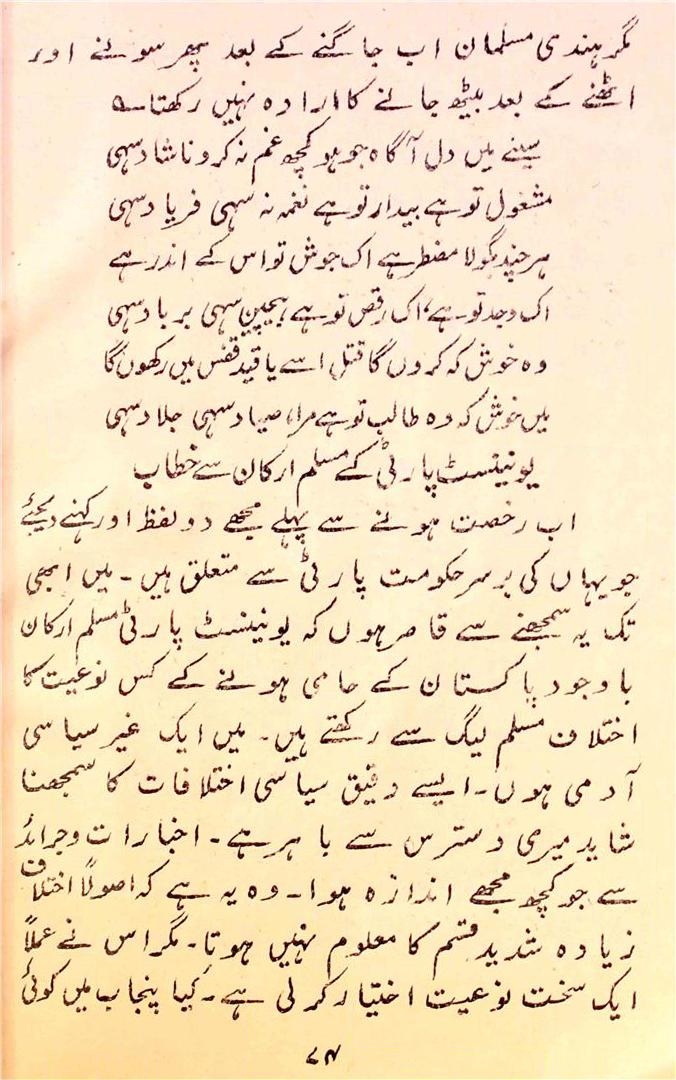 مگر ہندی مسلمان اب جاگنے کے بعد پھر سونے اور
اٹھنے کے بعد بیٹھ جانے کا ارادہ نہیں رکھتا ؎
سینے میں دل آگاہ جو ہو کچھ غم نہ کرو ناشاد سہی
مشغول تو ہے بیدار تو ہے نغمہ نہ سہی فریاد سہی
ہر چند بگولا مضطر ہے اک جوش تو اس کے اندر ہے
اک وجد تو ہے، اک رقص تو ہے بیچین سہی برباد سہی
وہ خوش کہ کروں گا قتل اسے یا قید قفس میں رکھوں گا
میں خوش کہ وہ طالب تو ہے مرا، صیاد سہی جلاد سہی
یونینسٹ پارٹی کے مسلم ارکان سے خطاب
اب رخصت ہونے سے پہلے مجھے دو لفظ اور کہنے دیجئے
جو یہاں کی برسر حکومت پارٹی سے متعلق ہیں ۔ میں ابھی
تک یہ سمجھنے سے قاصر ہوں کہ یونینسٹ پارٹی مسلم ارکان
باوجود پاکستان کے حامی ہونے کے کس نوعیت کا
اختلاف مسلم لیگ سے رکھتے ہیں ۔ میں ایک غیر سیاسی
آدمی ہوں ۔ ایسے دقیق سیاسی اختلافات کا سمجھنا
شاید میری دسترس سے باہر ہے ۔ اخبارات و جرائد
سے جو کچھ مجھے اندازہ ہوا ۔ وہ یہ ہے کہ اصولاً اختلاف
زیادہ شدید قسم کا معلوم نہیں ہوتا ۔ مگر اس نے عملاً
ایک سخت نوعیت اختیار کر لی ہے ۔ کیا پنجاب میں کوئی